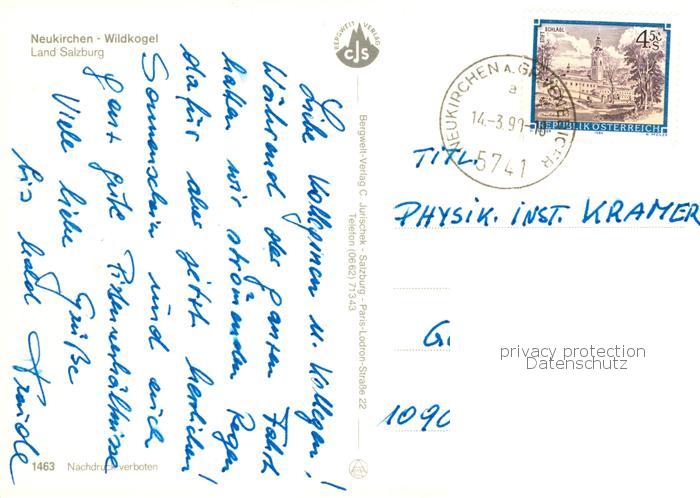 Neukirchen - Wildkogel
Land Salzburg
BERGWELT VERLAG
CJS
Liebe Kolleginnen u. Kollegen!
Während der ganzen Fahrt
hatten wir strömenden Regen
dafür aber jetzt herrlichen
Sonnenschein und auch
ganz gute Pistenverhältnisse
Viele liebe Grüße
bis bald
1463 Nachdruck verboten
Bergwelt-Verlag C. Jurischek - Salzburg - Paris-Lodron-Straße 22
Telefon (0662) 71343
STIFT SCHLÄGL
4.50 S
REPUBLIK ÖSTERREICH
NEUKIRCHEN A. GROSSVENEDIGER
a
14.-3.91
5741
TITL.
PHYSIK. INST. KRAMER
G
1090
privacy protection
Datenschutz